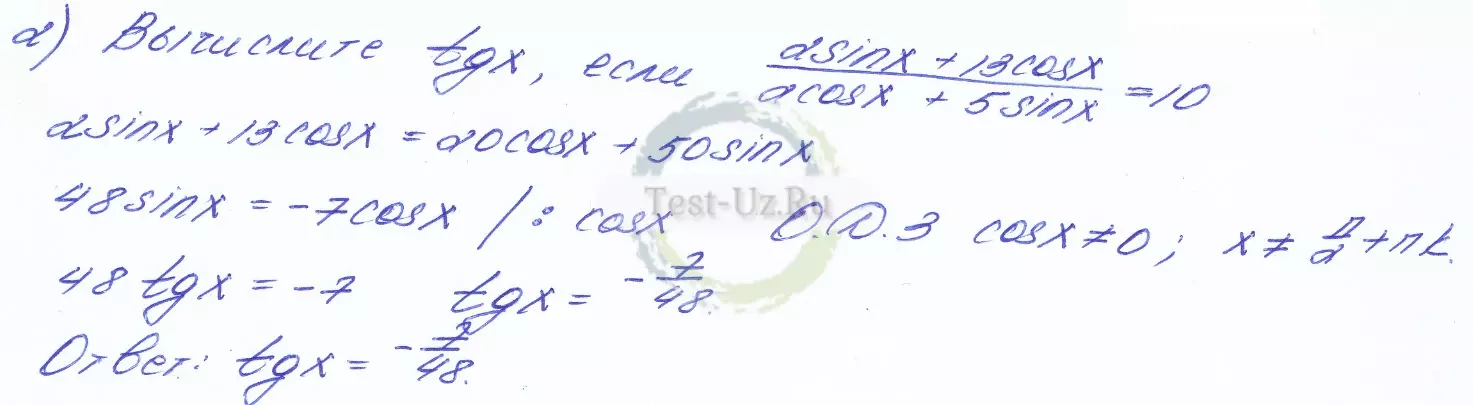 2) Вычислите tgx, если (2sinx + 13cosx)/(2cosx + 5sinx) = 10
2sinx + 13cosx = 20cosx + 50sinx
Test-Uz.Ru
48sinx = -7cosx /: cosx О.Д.З cosx≠0; x≠ π/2 + πk.
48 tgx = -7 tgx = -7/48.
Ответ: tgx = -7/48.